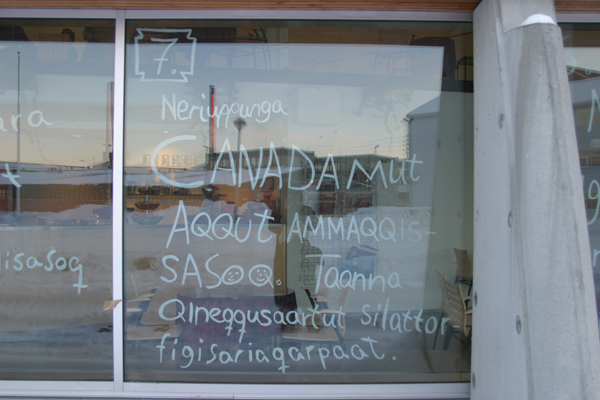 7.
Neriuppunga
CANADAmut
AQQUT AMMAQQIS-
SASOQ. Taanna
Qineqqusaartut silattor
figisariaqarpaat.
ara
t
lisasoq